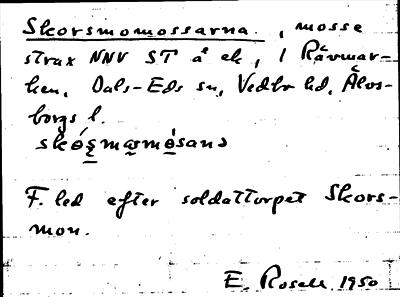 Skorsmomossarna, mosse
strax NNV ST å ek, i Råvmar-
ken, Dals-Eds sn, Vedbo hd, Älvs-
borgs l.
F. led efter soldattorpet Skors-
mon.
E. Rosell 1950